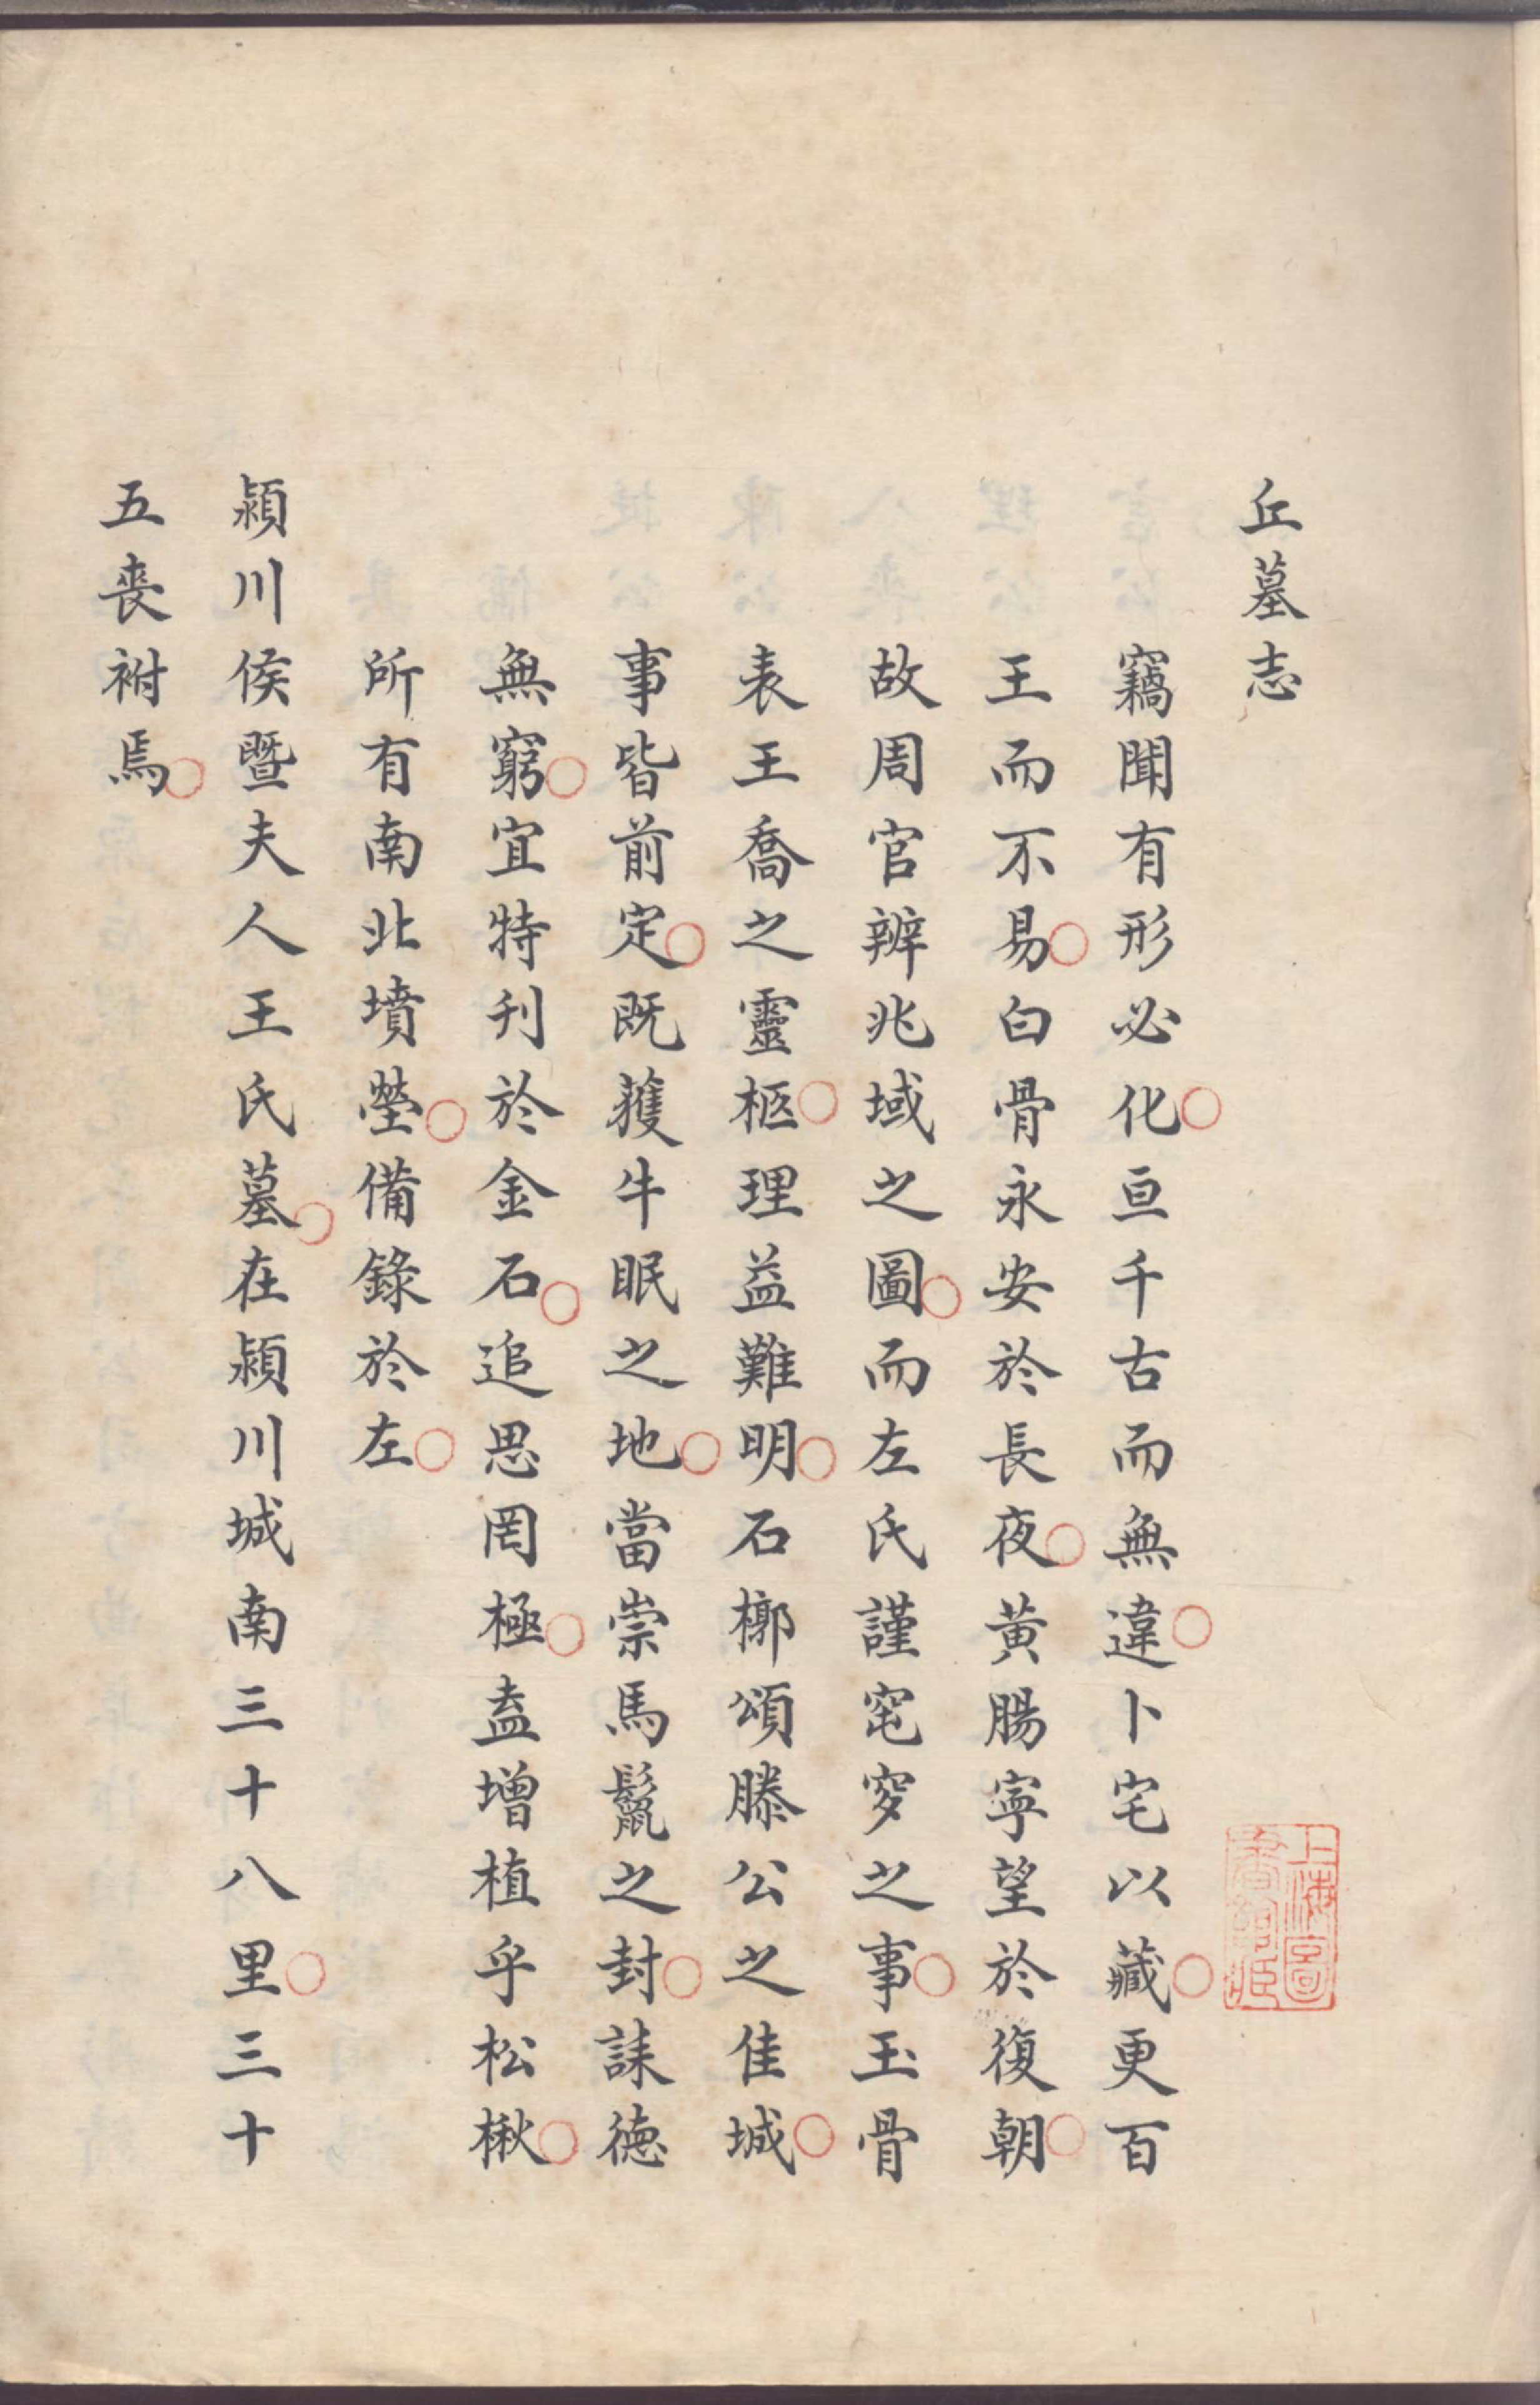 丘墓志
竊聞有形必化亘千古而無違卜宅以藏更百
王而不易白骨永安於長夜黃腸寧望於復朝
故周官辨兆域之圖而左氏謹窀穸之事玉骨
表王喬之靈柩理益難明石槨頌滕公之佳城
事皆前定既獲牛眠之地當崇馬鬛之封誄德
無窮宜特刊於金石追思罔極盍增植乎松楸
所有南北墳塋備錄於左
潁川侯暨夫人王氏墓在潁川城南三十八里三十
五喪祔焉
上海圖
書館藏